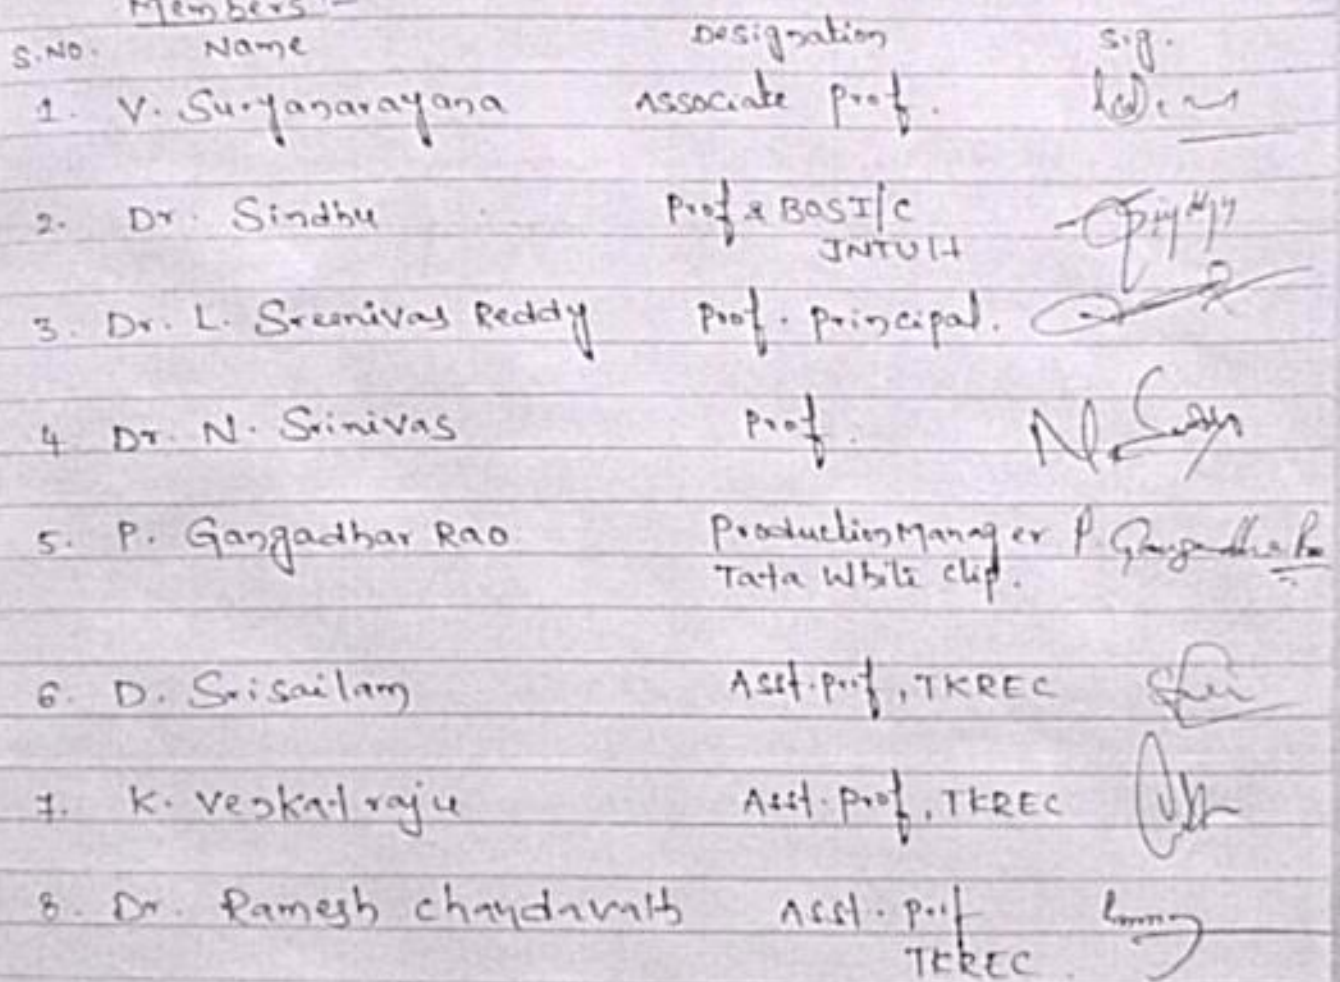 Members -
S.NO. Name Designation Sig.
1. V. Suryanarayana Associate Prof.
2. Dr. Sindhu Prof & BOS I/C
JNTUH
3. Dr. L. Sreenivas Reddy Prof. Principal.
4 Dr. N. Srinivas Prof.
5. P. Gangadhar Rao Production Manager P. Gangadhar Rao
Tata White Chip.
6. D. Srisailam Asst. prof, TKREC
7. K. Venkat raju Asst. Prof, TKREC
8. Dr. Ramesh Chandavath Asst. Prof
TKREC.